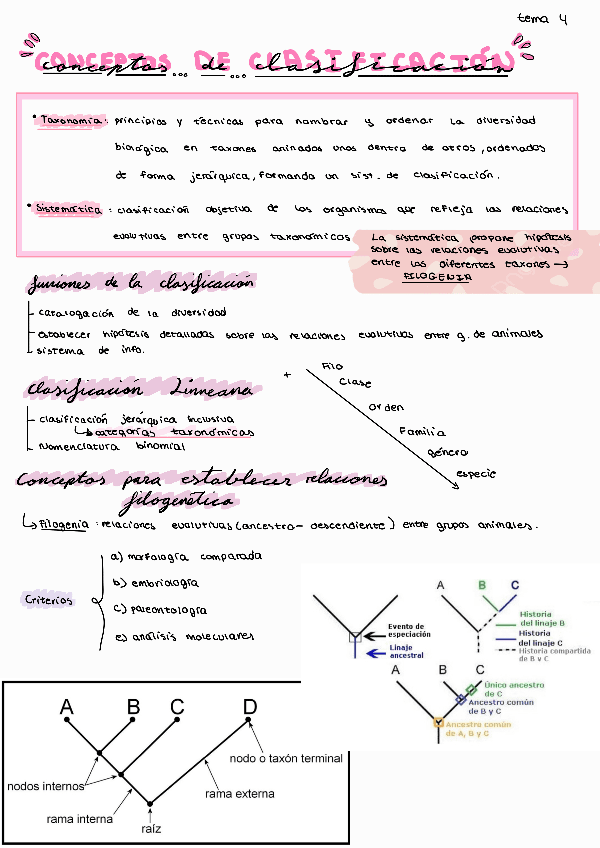 tema 4
CONCEPTOS DE CLASIFICACIÓN
conceptos... de... clasificación
• Taxonomía: principios y técnicas para nombrar y ordenar la diversidad
biológica en taxones anidados unos dentro de otros, ordenados
de forma jerárquica, formando un sist. de clasificación.
• Sistemática: clasificación objetiva de los organismo que refleja las relaciones
evolutivas entre grupos taxonómicos
La sistemática propone hipótesis
sobre las relaciones evolutivas
entre los diferentes taxones →
FILOGENIA
funiones de la clasificación
catalogación de la diversidad
establecer hipótesis detalladas sobre las relaciones evolutivas entre g. de animales
sistema de info.
Clasificación Linneana
clasificación jerárquica inclusiva
↳ categorías taxonómicas
Nomenclatura binomial
+
Filo
Clase
Orden
Familia
género
especie
Conceptos para establecer relaciones
filogenética
↳ Filogenia: relaciones evolutivas (ancestro-descendiente) entre grupos animales.
Criterios
a) morfología comparada
b) embriología
c) paleontología
e) análisis moleculares
Evento de
especiación
Linaje
ancestral
A B C
Historia
del linaje B
Historia
del linaje C
Historia compartida
de B y C
A B C
Único ancestro
de C
Ancestro común
de B y C
Ancestro común
de A, B y C
A B C D
nodo o taxón terminal
nodos internos
rama externa
rama interna
raíz